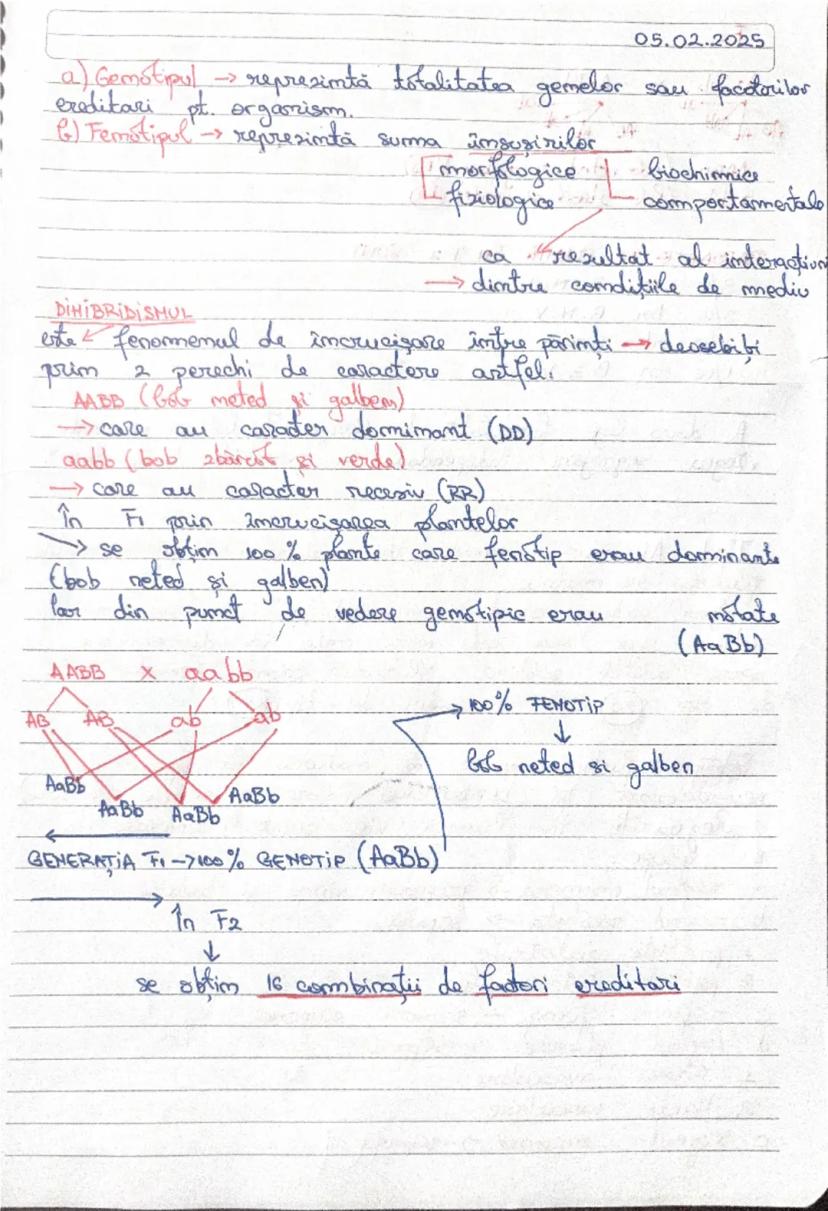 05.02.2025
a) Genotipul → reprezintă totalitatea genelor sau factorilor
ereditari pt. organism.
b) Fenotipul → reprezintă suma însușirilor
morfologice biochimice
fiziologice comportamentale
ca rezultat al interacțiunii
→ dintre condițiile de mediu
DIHIBRIDISMUL
este fenomenul de încrucișare între părinți → deosebiți
prin 2 perechi de caractere astfel:
AABB (bob neted și galben)
→ care au caracter dominant (DD)
aabb (bob zbârcit și verde)
→ care au caracter recesiv (RR)
În F1 prin încrucișarea plantelor
→ se obțin 100 % plante care fenotip erau dominante
(bob neted și galben)
Iar din punct de vedere genotipic erau notate
(AaBb)
AABB x aabb
AB AB ab ab
AaBb AaBb AaBb AaBb
→ 100% FENOTIP
↓
bob neted si galben
GENERAȚIA F1 → 100% GENOTIP (AaBb)
În F2
↓
se obțin 16 combinații de factori ereditari